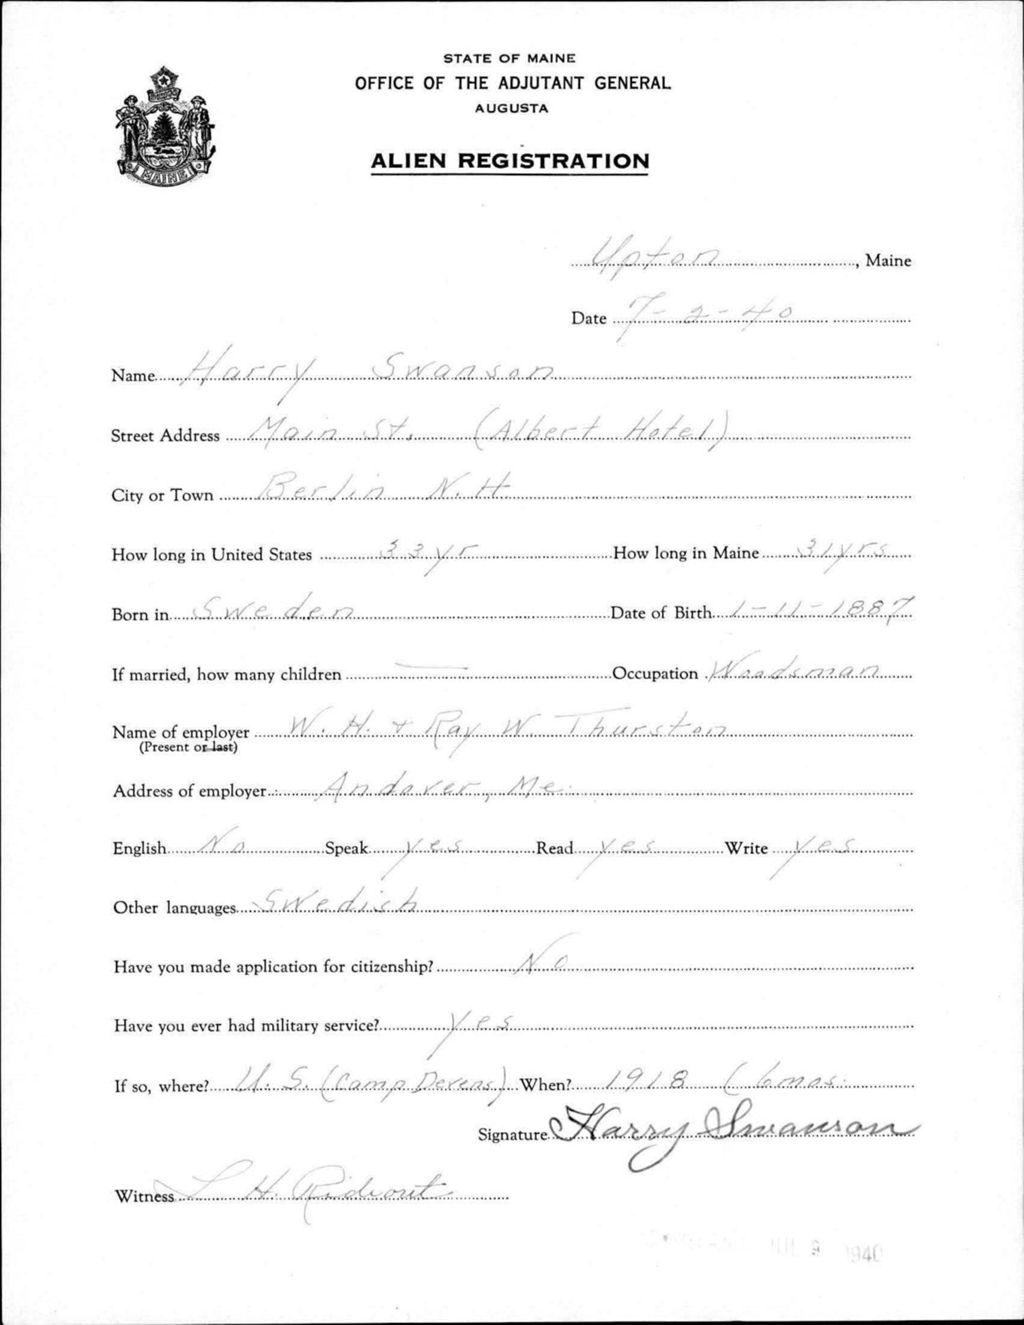 STATE OF MAINE
OFFICE OF THE ADJUTANT GENERAL
AUGUSTA
ALIEN REGISTRATION
MAINE
Upton, Maine
Date 7-2-40
Name Harry Swanson
Street Address Main St. (Albert Hotel)
City or Town Berlin N.H.
How long in United States 33 yr How long in Maine 31 yrs
Born in Sweden Date of Birth 1-11-1887
If married, how many children — Occupation Woodsman
Name of employer W. H. + Ray W. Thurston
(Present or last)
Address of employer Andover, Me.
English No Speak yes Read yes Write yes
Other languages Swedish
Have you made application for citizenship? No
Have you ever had military service? yes
If so, where? U.S. (Camp Devens) When? 1918 (6 mos.
Signature Harry Swanson
Witness L H. Rideout
JUL 9 1940